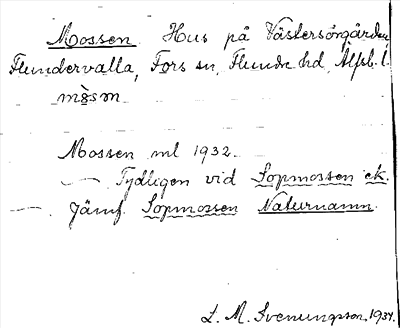 Mossen. Hus på Västersörgården,
Flundervalla, Fors sn, Flundre hd, Älfsb. l.
mòsm
Mossen ml 1932.
— Tydligen vid Sopmossen ek.
— . Jämf. Sopmossen Naturnamn.
L. M. Svenungsson, 1934.